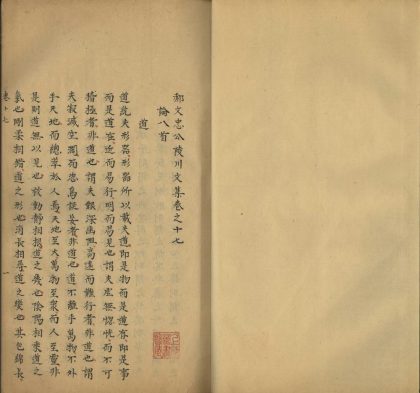 郝文忠公陵川文集卷之十七
論八首
道
道統夫形器形器所以載夫道即是物而是道存即是事
而是道在近而易行明而易見也謂夫虛無惚恍而不可
稽極者非道也謂夫艱深幽阻高遠而難行者非道也謂
夫寂滅空闊而恣為誕妄者非道也道不離乎萬物不外
乎天地而總萃於人焉天地至大萬物至眾而人至靈非
是則道無以見也故動靜相根道之幾也陰陽相乘道之
氣也剛柔相錯道之形也消長相尋道之變也其包綿長
卷十七
一